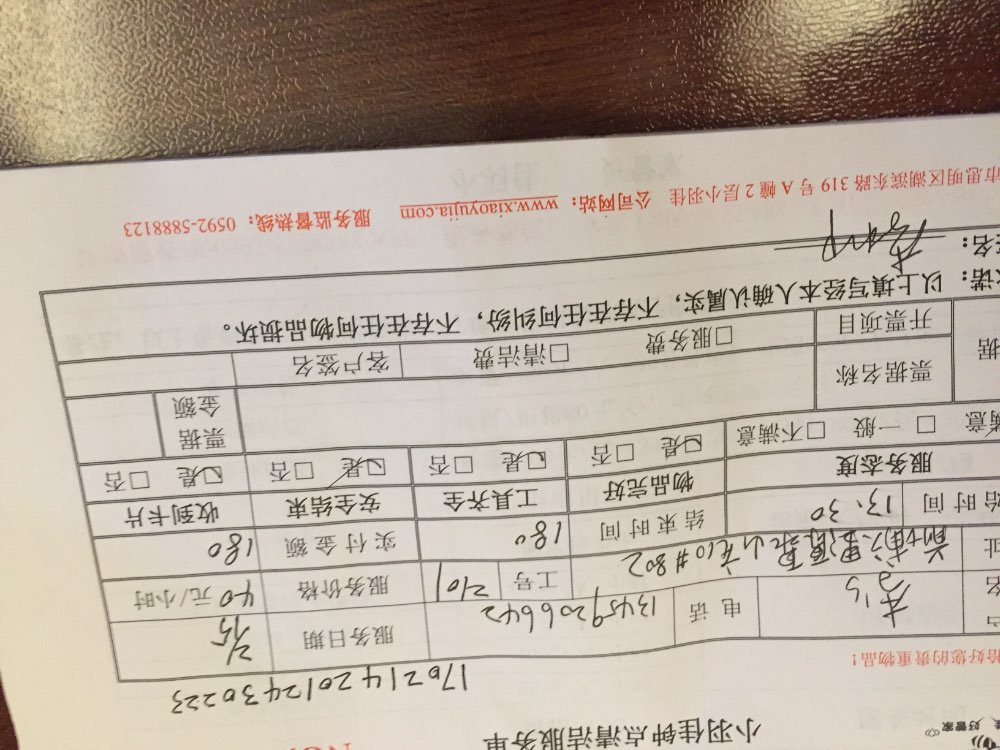 好管家
小羽佳钟点清洁服务单
恰好您的贵重物品！
1702142012430223
电话 13459206642 服务日期 2/15
工号 2101 服务价格 40元/小时
始时间 13:30 结束时间 180 实付金额 180
服务态度 物品完好 工具齐全 安全结束 收到卡片
满意 □一般 □不满意 □是 □否 □是 □否 □是 □否 □是 □否
据 票据名称 票据金额
开票项目 □服务费 □清洁费 客户签名
诺：以上填写经本人确认属实，不存在任何纠纷，不存在任何物品损坏。
签名：
市思明区湖滨东路 319 号 A 幢 2 层小羽佳 公司网站：www.xiaoyujia.com 服务监督热线：0592-5888123